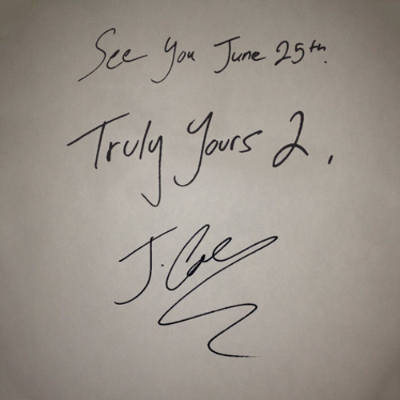 See You June 25th.
Truly Yours 2,
J. Cole